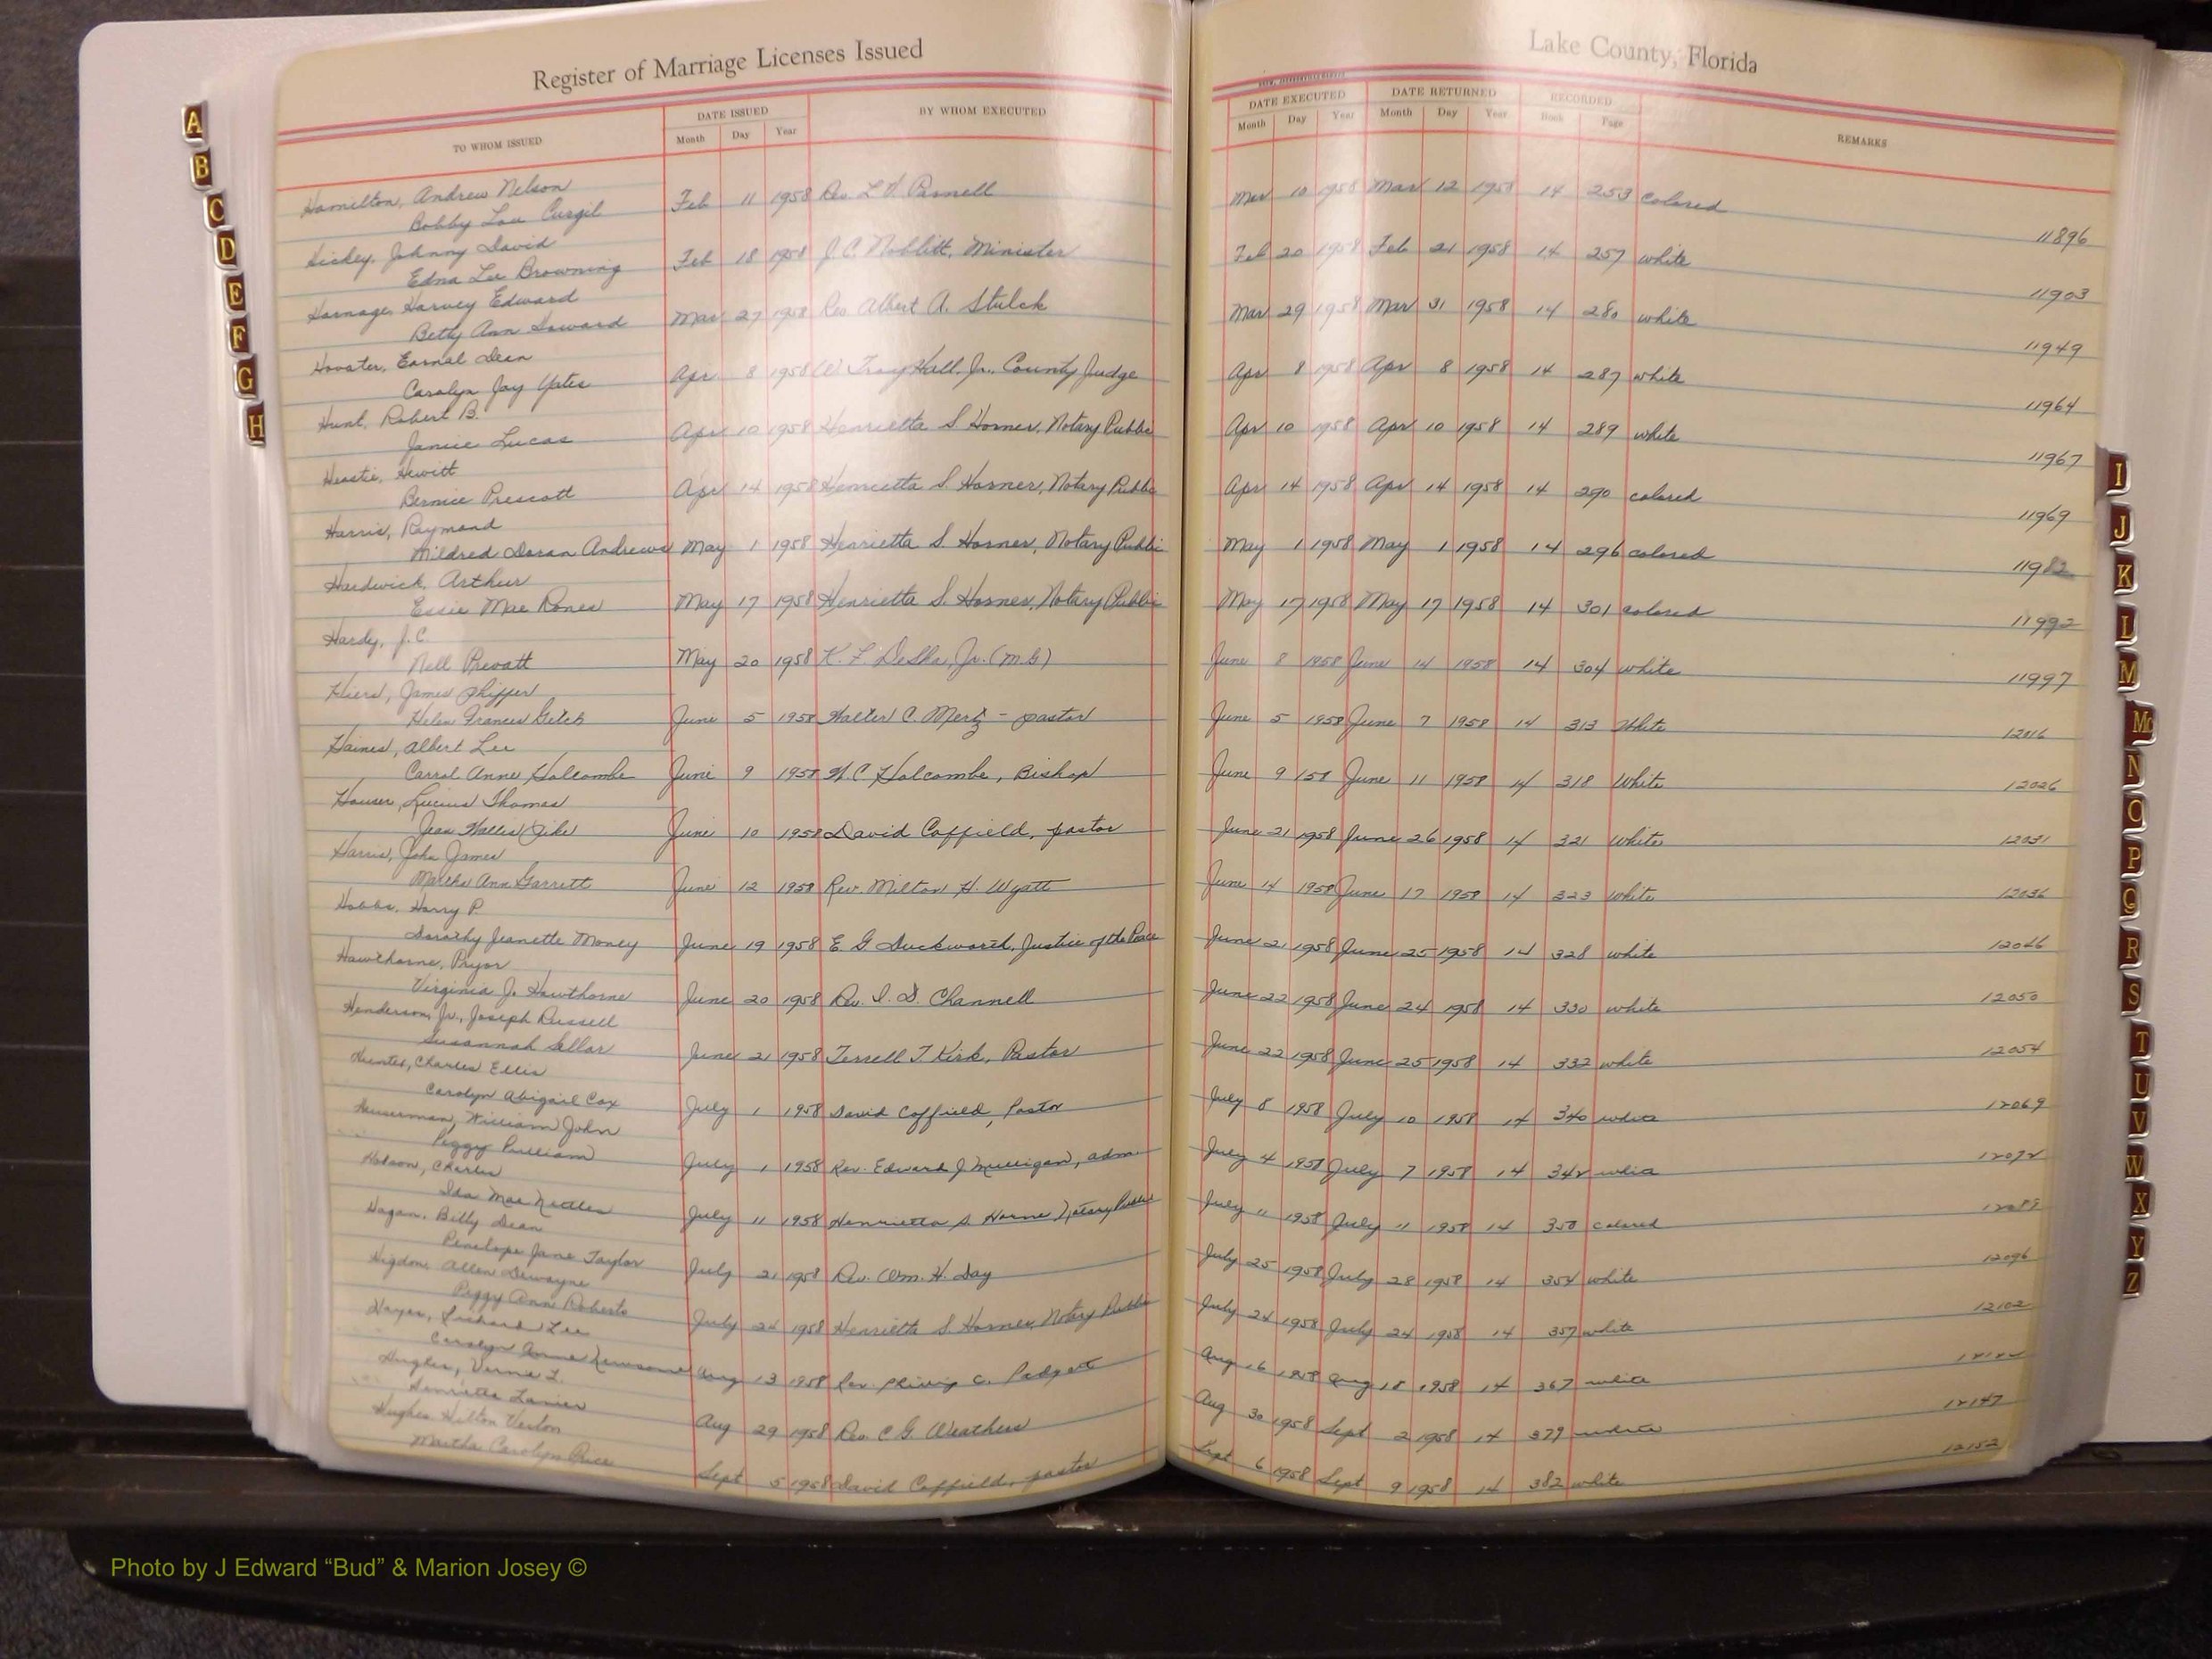 Register of Marriage Licenses Issued
Lake County, Florida
TO WHOM ISSUED
DATE ISSUED
Month Day Year
BY WHOM EXECUTED
DATE EXECUTED
Month Day Year
DATE RETURNED
Month Day Year
RECORDED
Book Page
REMARKS
Hamilton, Andrew Nelson
Bobby Lou Feb 11 1958 Rev L Parnell Mar 10 1958 Mar 12 1958 14 253 colored 11896
Hickey, Johnny David
Edna Lee Browning Feb 18 1958 J.C. Noblitt, Minister Feb 20 1958 Feb 21 1958 14 257 white 11903
Harnage, Harvey Edward
Betty Ann Howard Mar 27 1958 Rev Albert A. Stulck Mar 29 1958 Mar 31 1958 14 280 white 11949
Earnal Dean
Carolyn Joy Yates Apr 8 1958 W Troy Hall, Jr., County Judge Apr 8 1958 Apr 8 1958 14 287 white 11964
Hunt, Robert B.
Janice Lucas Apr 10 1958 Henrietta S Horner, Notary Public Apr 10 1958 Apr 10 1958 14 289 white 11967
Hewitt
Bernice Prescott Apr 14 1958 Henrietta S. Horner, Notary Public Apr 14 1958 Apr 14 1958 14 290 colored 11969
Harris, Raymond
Mildred Doran Andrews May 1 1958 Henrietta S. Horner, Notary Public May 1 1958 May 1 1958 14 296 colored 11982
Hardwick, Arthur
Essie Mae Rones May 17 1958 Henrietta S. Horner, Notary Public May 17 1958 May 17 1958 14 301 colored 11992
Hardy, J.C.
Nell Prevatt May 20 1958 K. F. Jr. (M.G) June 8 1958 June 14 1958 14 304 white 11997
Hiers, James
Helen Frances Getch June 5 1958 Walter C Mertz - pastor June 5 1958 June 7 1958 14 313 White 12016
Haines, Albert Lee
Carrol Anne Holcombe June 9 1958 W.C. Holcombe, Bishop June 9 158 June 11 1958 14 318 White 12026
Houser, Lucius Thomas
Jean Wallis June 10 1958 David Coffield, pastor June 21 1958 June 26 1958 14 321 White 12031
Harris, John James
Martha Ann Garrett June 12 1958 Rev. Milton H. Wyatt June 14 1958 June 17 1958 14 323 white 12036
Hobbs, Harry P.
Dorothy Jeanette Money June 19 1958 E G Duckworth, Justice of the Peace June 21 1958 June 25 1958 14 328 white 12046
Hawthorne, Pryor
Virginia J. Hawthorne June 20 1958 Rev. I. D. Channell June 22 1958 June 24 1958 14 330 white 12050
Henderson, Jr., Joseph Russell
Susannah Sellar June 21 1958 Terrell T Kirk, Pastor June 22 1958 June 25 1958 14 332 white 12054
Hunter, Charles Ellis
Carolyn Abigail Cox July 1 1958 David Coffield, Pastor July 8 1958 July 10 1958 14 340 white 12069
Heuserman, William John
Peggy Pulliam July 1 1958 Rev. Edward J Mulligan, adm. July 4 1958 July 7 1958 14 342 white 12072
Charles
Ida Mae Nettles July 11 1958 Henrietta S. Horner Notary Public July 11 1958 July 11 1958 14 350 colored 12089
Hagan, Billy Dean
Penelope Jane Taylor July 21 1958 Rev. Wm. H. Day July 25 1958 July 28 1958 14 354 white 12096
Higdon, Allen Dewayne
Peggy Ann Roberts July 24 1958 Henrietta S Horner, Notary Public July 24 1958 July 24 1958 14 357 white 12102
Hayes, Richard Lee
Carolyn Anne Newsome Aug 13 1958 Rev. C. Padgett Aug 16 1958 Aug 18 1958 14 367 white
Hughes, Verne L.
Henrietta Lanier Aug 29 1958 Rev. C G. Weathers Aug 30 1958 Sept 2 1958 14 379 white 12147
Hughes Hilton Verlon
Martha Carolyn Price Sept 5 1958 David Coffield, pastor Sept 6 1958 Sept 9 1958 14 382 white 12152
A
B
C
D
E
F
G
H
I
J
K
L
M
Mc
N
O
P
Q
R
S
T
U
V
W
X
Y
Z
Photo by J Edward “Bud” & Marion Josey ©